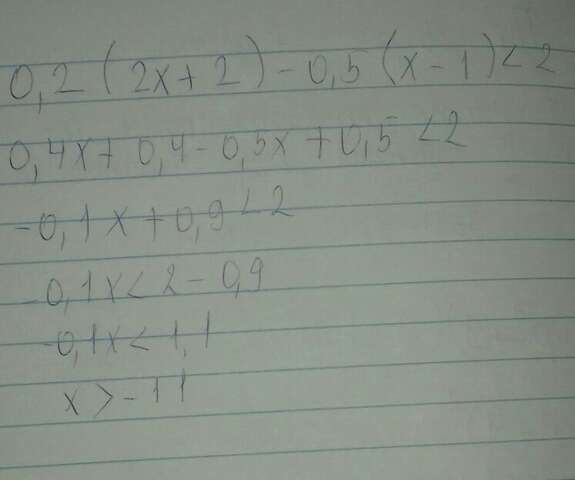 0,2 (2x+2)-0,5(x-1)<2
0,4x+0,4-0,5x+0,5<2
-0,1x+0,9<2
-0,1x<2-0,9
-0,1x<1,1
x>-11